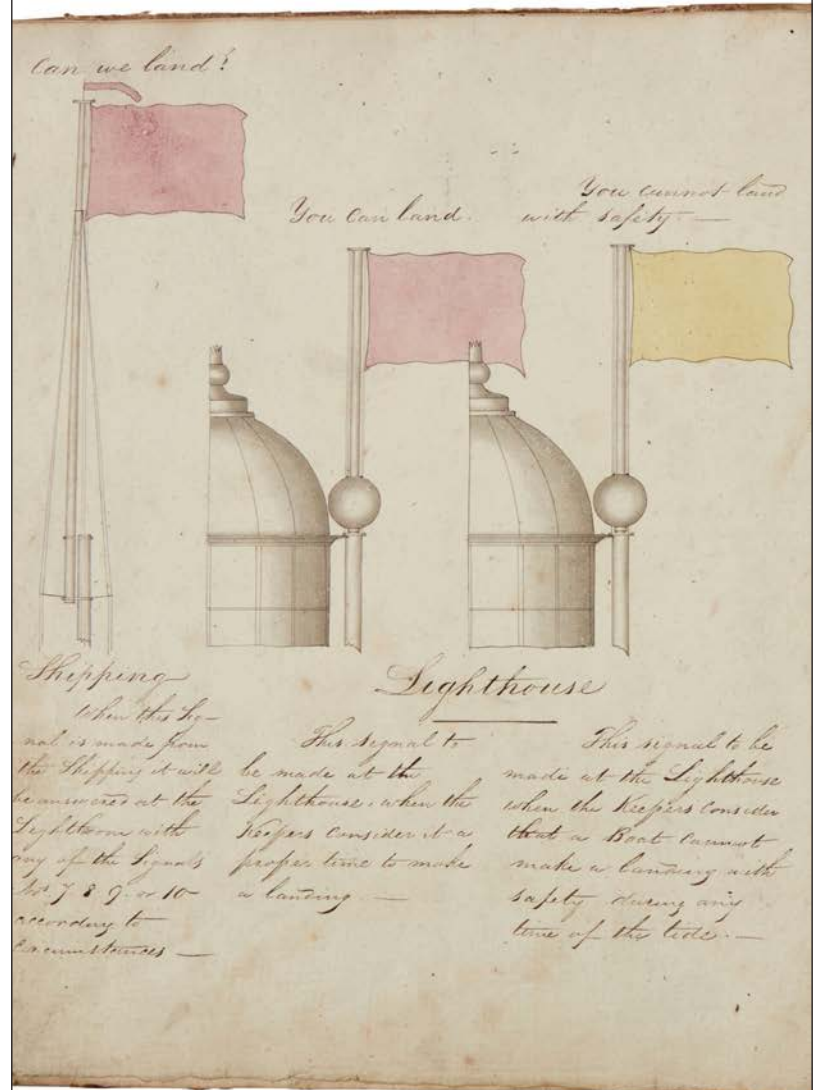 Can we land?
You Can land.
You cannot land
with safety. —
Shipping
When this Sig-
nal is made from
the Shipping it will
be answered at the
Lighthouse with
any of the Signals
No. 7 8 9. or 10
according to
Circumstances —
Lighthouse
This signal to
be made at the
Lighthouse, when the
Keepers Consider it a
proper time to make
a landing. —
This signal to be
made at the Lighthouse
when the Keepers Consider
that a Boat Cannot
make a landing with
safety during any
time of the tide. —